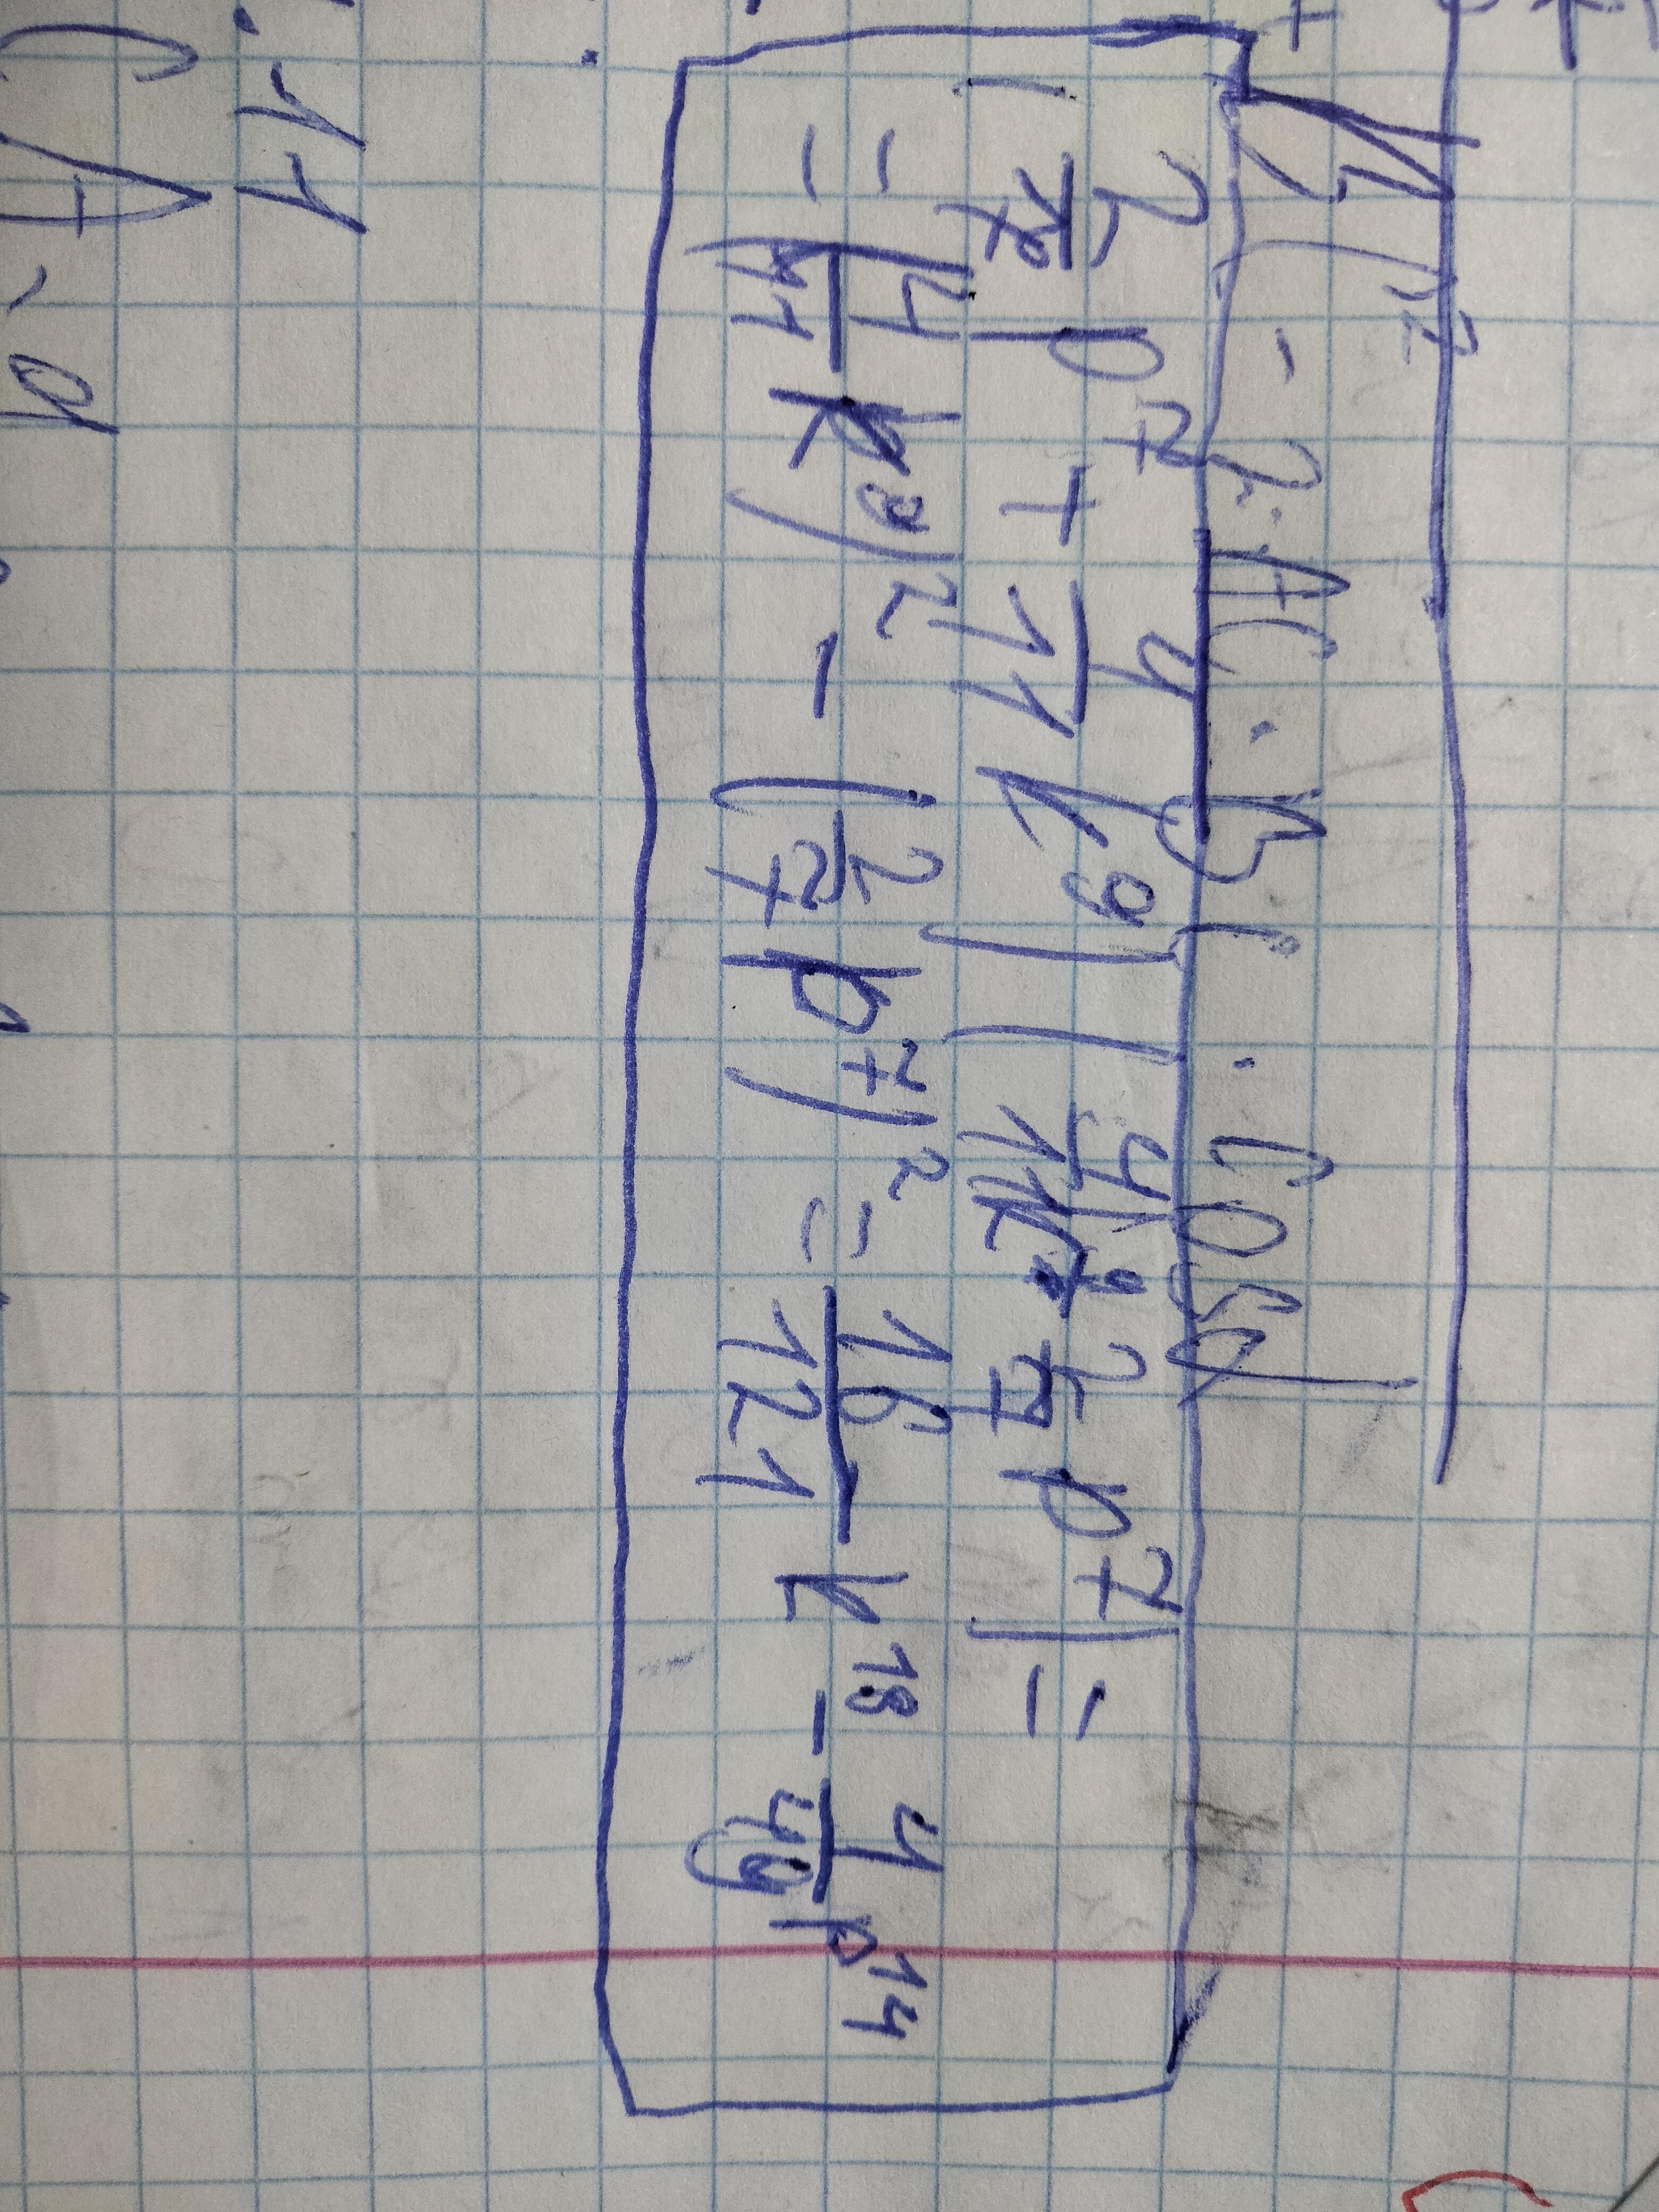 - 2·AC·B
· cos
(2/7 p^7 + 4/11 k^9)(4/11 k^9 - 2/7 p^7) =
= (4/11 k^9)^2 - (2/7 p^7)^2 = 16/121 k^18 - 4/49 p^14
11